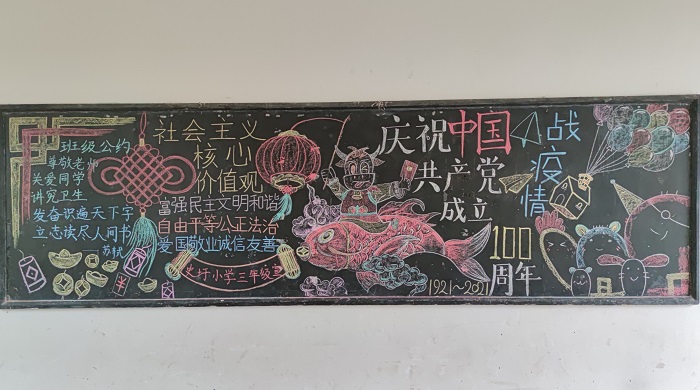 班级公约
尊敬老师
关爱同学
讲究卫生
发奋识遍天下字
立志读尽人间书
苏轼
社会主义
核心
价值观
富强民主文明和谐
自由平等公正法治
爱国敬业诚信友善
圩小学三年级
庆祝中国
共产党
成立
100
周年
1921~2021
战
疫
情